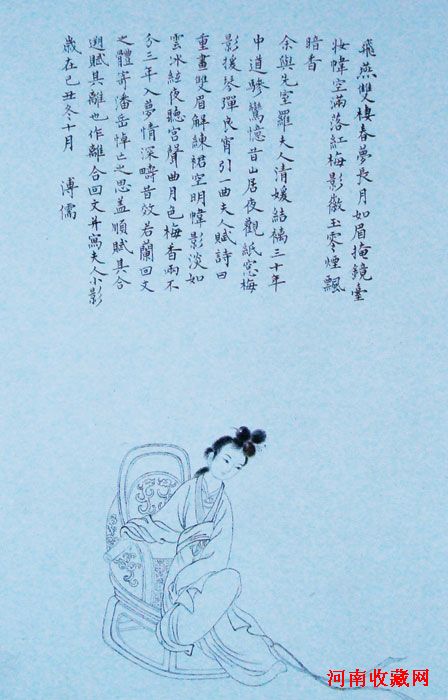 飛燕雙棲春夢長月如眉掩鏡臺
妝幃空滿落紅梅影散玉零煙飄
暗香
余與先室羅夫人清媛結褵三十年
中道驂鸞憶昔山居夜觀紙窓梅
影援琴彈良宵引一曲夫人賦詩曰
重畫雙眉解練裙空明幃影淡如
雲冰絃夜聽宮聲曲月色梅香兩不
分三年入夢情深疇昔效若蘭回文
之體寄潘岳悼亡之思蓋順賦其合
遡賦其離也作離合回文并寫夫人小影
歲在己丑冬十月 溥儒
河南收藏网